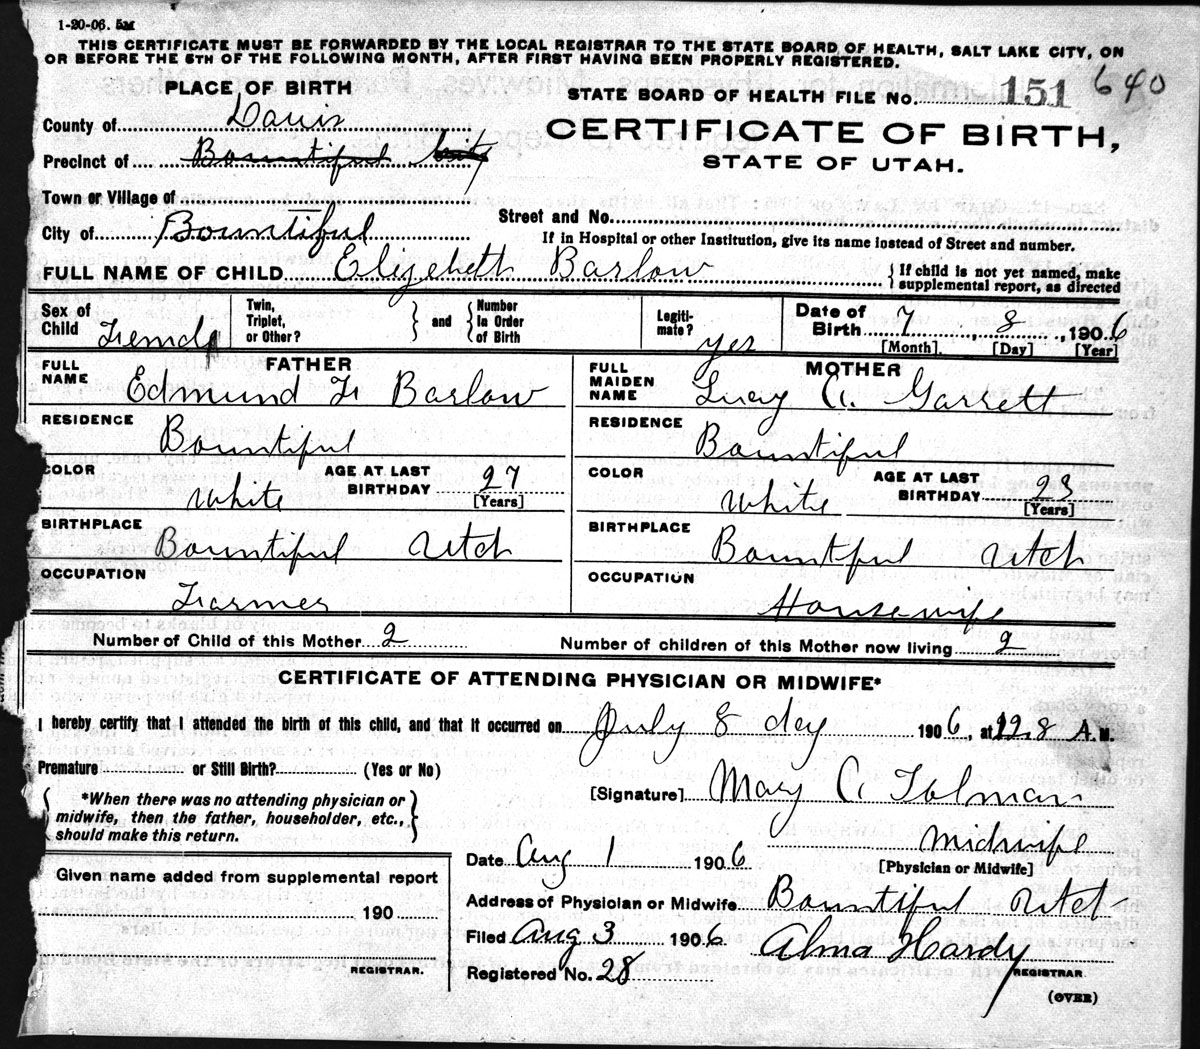 1-20-06. 5M
THIS CERTIFICATE MUST BE FORWARDED BY THE LOCAL REGISTRAR TO THE STATE BOARD OF HEALTH, SALT LAKE CITY, ON
OR BEFORE THE 5TH OF THE FOLLOWING MONTH, AFTER FIRST HAVING BEEN PROPERLY REGISTERED.
PLACE OF BIRTH
STATE BOARD OF HEALTH FILE No. 151 640
County of Davis
CERTIFICATE OF BIRTH,
STATE OF UTAH.
Precinct of Bountiful City
Town or Village of
City of Bountiful
Street and No.
If in Hospital or other Institution, give its name instead of Street and number.
FULL NAME OF CHILD Elizebeth Barlow
If child is not yet named, make
supplemental report, as directed
Sex of Child Female
Twin, Triplet, or Other?
and
Number In Order of Birth
Legitimate? yes
Date of Birth 7, 8, 1906
[Month] [Day] [Year]
FATHER
FULL NAME Edmund F. Barlow
RESIDENCE Bountiful
COLOR White
AGE AT LAST BIRTHDAY 27
[Years]
BIRTHPLACE Bountiful Utah
OCCUPATION Farmer
MOTHER
FULL MAIDEN NAME Lucy A. Garrett
RESIDENCE Bountiful
COLOR White
AGE AT LAST BIRTHDAY 23
[Years]
BIRTHPLACE Bountiful Utah
OCCUPATION Housewife
Number of Child of this Mother 2
Number of children of this Mother now living 2
CERTIFICATE OF ATTENDING PHYSICIAN OR MIDWIFE*
I hereby certify that I attended the birth of this child, and that it occurred on July 8 day 1906, at A.M.
Premature or Still Birth? (Yes or No)
*When there was no attending physician or
midwife, then the father, householder, etc.,
should make this return.
[Signature] Mary C. Tolman
Midwife
[Physician or Midwife]
Date Aug 1 1906
Given name added from supplemental report
190
REGISTRAR.
Address of Physician or Midwife Bountiful Utah
Filed Aug 3 1906 Alma Hardy
REGISTRAR
Registered No. 28
(OVER)